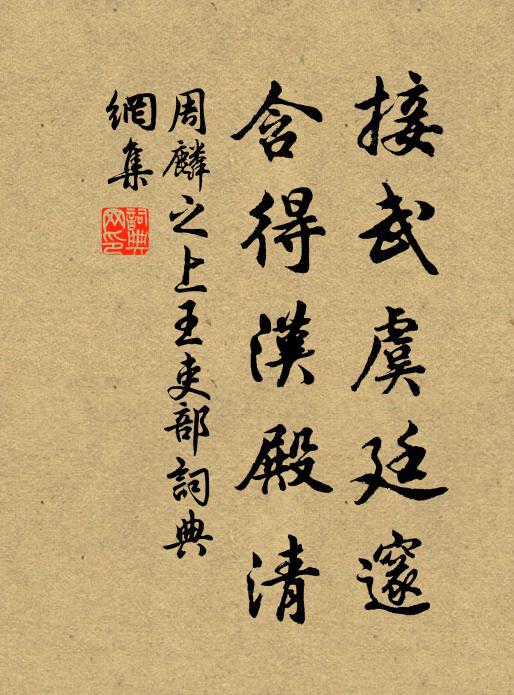 接武虞廷邃
含得漢殿清
周麟之上王吏部詞典
網集
詞典網印